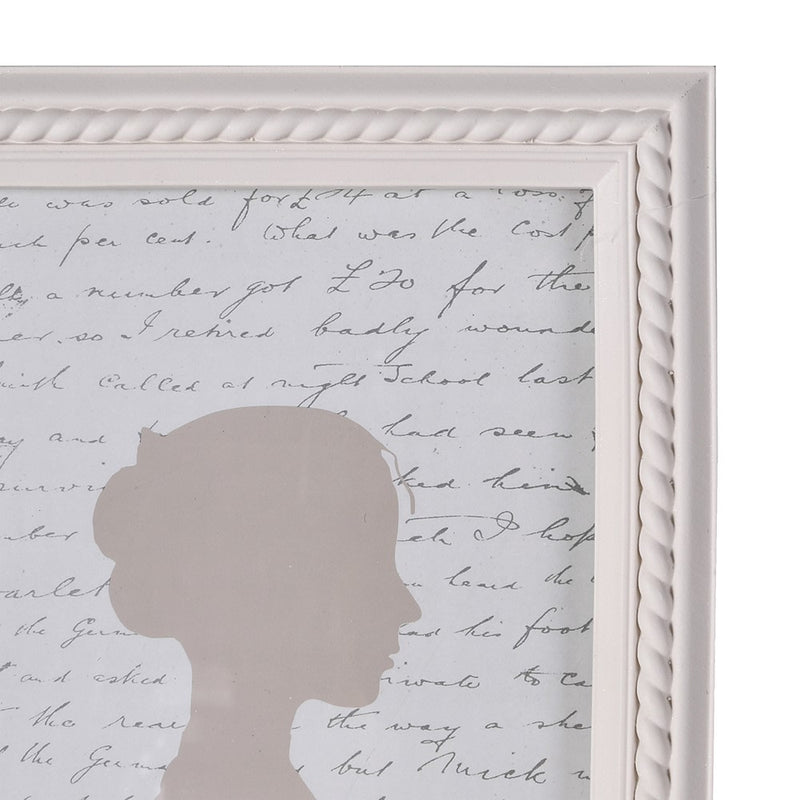 was sold for £14 at a loss.
per cent. What was the cost
a number got £20 for the
so I retired badly wounde
called at night School last
and had seen
ked him
ber ch I hop
arlet heard the
the Germ ad his foot
and asked rivate to ca
the rear the way a she
the Germa but Mick